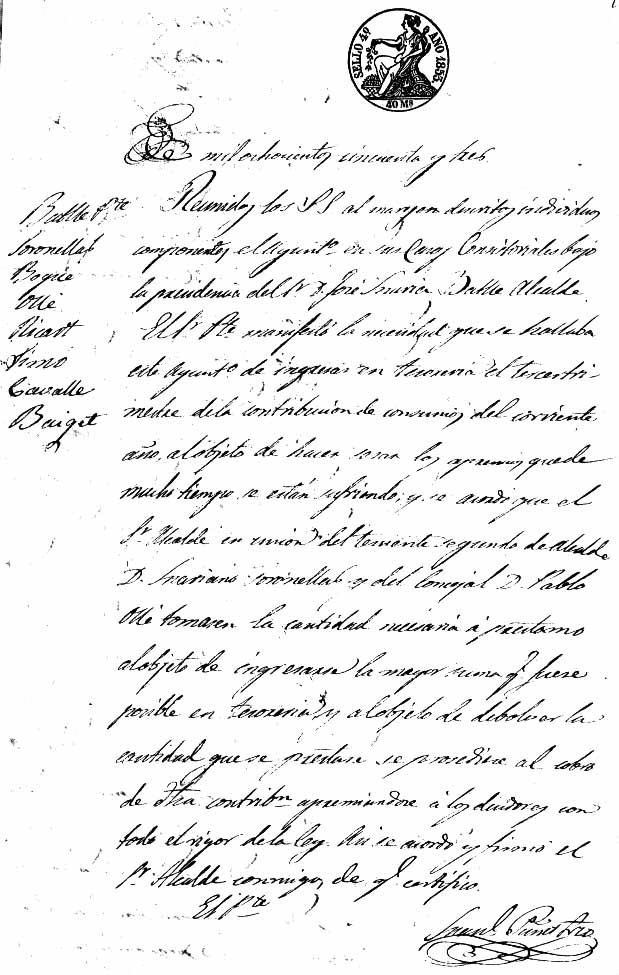 SELLO 4º AÑO 1853.
40 Ms
De mil ochocientos cincuenta y tres.
Batlle Pte
Soronellas
Boqué
Ollé
Ricart
Simo
Cavalle
Baiget
Reunidos los SS al margen descritos individuos
componentes el Ayuntº en sus Casas Consistoriales bajo
la presidencia del Sr D. José Maria Batlle Alcalde.
El Sr Pte manifestó la necesidad que se hallaba
este Ayuntº de ingresar en tesoreria el tercer tri-
mestre de la contribución de consumos del corriente
año, al objeto de hacer los apremios que de
mucho tiempo se están sufriendo; y se acordó que el
Sr Alcalde en unión del teniente segundo de Alcalde
D. Mariano Soronellas y del Concejal D. Pablo
Ollé tomasen la cantidad necesaria á préstamo
al objeto de ingresarse la mayor suma q. fuese
posible en tesoreria, y al objeto de debolver la
cantidad que se prestase se prosediese al cobro
de dha contribn apremiandose á los deudores con
todo el rigor de la ley. Asi se acordó y firmó el
Sr Alcalde conmigo, de q. certifico.
El Pte